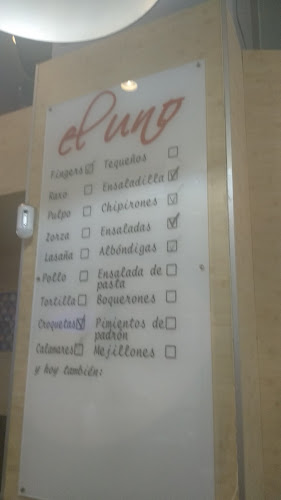 el uno
Fingers ☑ Tequeños ☐
Raxo ☐ Ensaladilla ☑
Pulpo ☐ Chipirones ☑
Zorza ☐ Ensaladas ☑
Lasaña ☐ Albóndigas ☑
Pollo ☐ Ensalada de pasta ☐
Tortilla ☐ Boquerones ☐
Croquetas ☑ Pimientos de padrón ☐
Calamares ☐ Mejillones ☐
y hoy también: